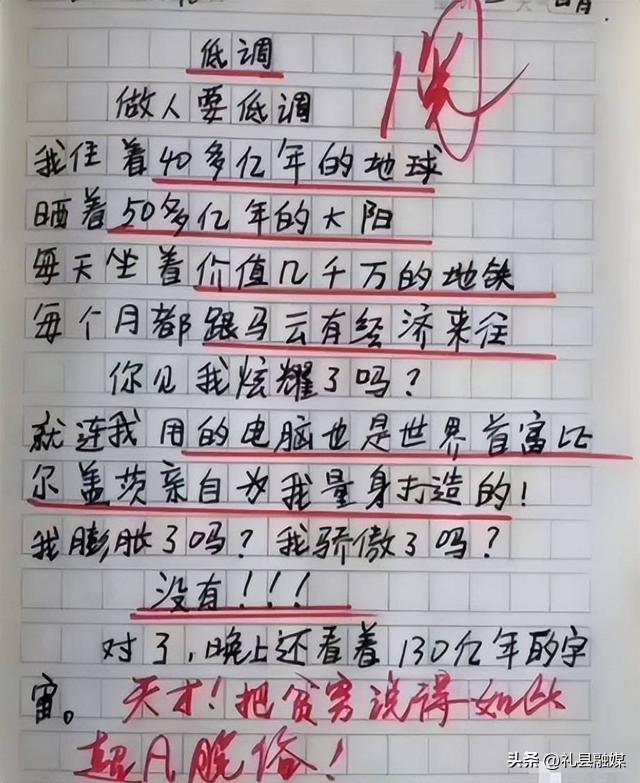 低调
做人要低调
我住着40多亿年的地球
晒着50多亿年的太阳
每天坐着价值几千万的地铁
每个月都跟马云有经济来往
你见我炫耀了吗?
就连我用的电脑也是世界首富比
尔盖茨亲自为我量身打造的!
我膨胀了吗?我骄傲了吗?
没有!!!
对了,晚上还看着130亿年的宇
宙。天才!把贫穷说得如此
超凡脱俗!
头条 @礼县融媒